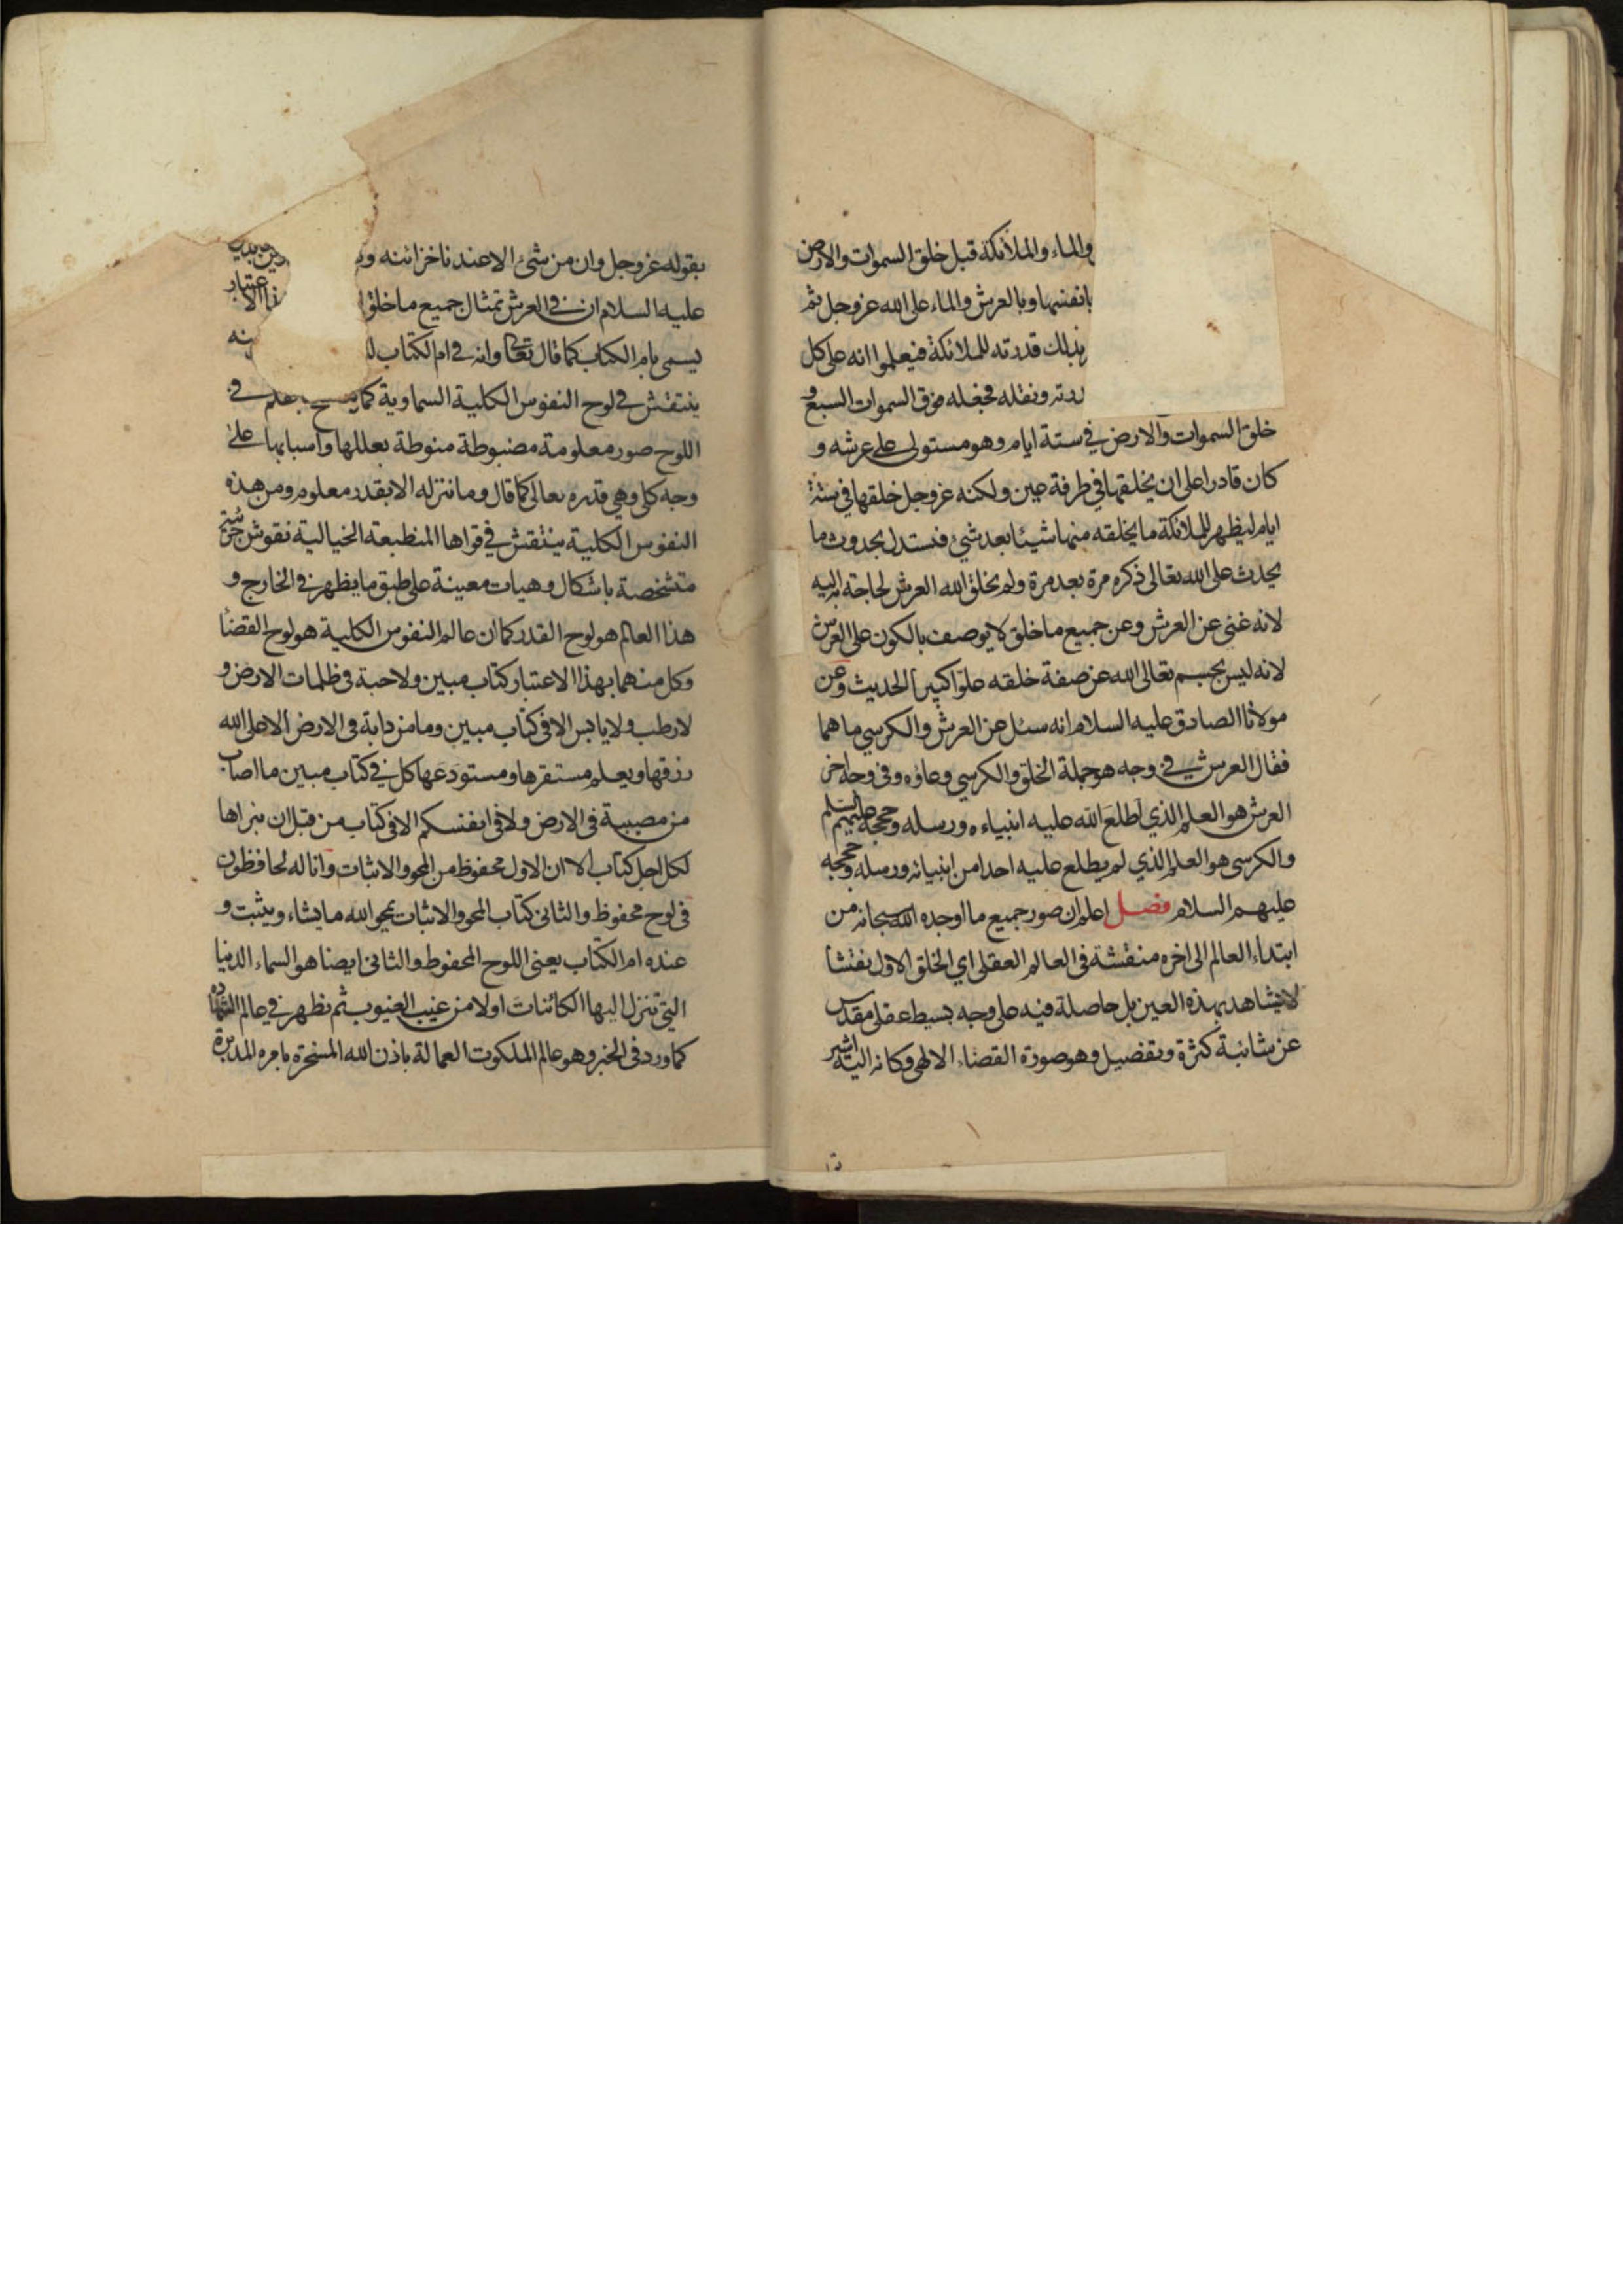 والماء والملائكة قبل خلق السموات والارض
بانفسها وبالعرش والماء على الله عز وجل ثم
بذلك قدرته للملائكة فيعلموا انه على كل
ونقله فجعله فوق السموات السبع و
خلق السموات والارض في ستة ايام وهو مستولى على عرشه و
كان قادرا على ان يخلقها في طرفة عين ولكنه عز وجل خلقها في ستة
ايام ليظهر للملائكة ما يخلقه منها شيئا بعد شئ فتستدل بحدوث ما
يحدث على الله تعالى ذكره مرة بعد مرة ولم يخلق الله العرش لحاجة به اليه
لانه غنى عن العرش وعن جميع ما خلق لا يوصف بالكون على العرش
لانه ليس بجسم تعالى الله عن صفة خلقه علوا كبيرا الحديث وعن
مولانا الصادق عليه السلام انه سئل عن العرش والكرسي ما هما
فقال العرش في وجه هو جملة الخلق والكرسي وعاؤه وفى وجه اخر
العرش هو العلم الذي اطلع الله عليه انبياءه ورسله وحججه عليهم السلم
والكرسى هو العلم الذي لم يطلع عليه احدا من انبيائه ورسله وحججه
عليهم السلام فصل اعلم ان صور جميع ما اوجده الله سبحانه من
ابتداء العالم الى اخره منتقشة فى العالم العقلى اي الخلق الاول نقشا
لا يشاهد بهذه العين بل حاصلة فيه على وجه بسيط عقلى مقدس
عن شائبة كثرة وتفصيل وهو صورة القضاء الالهى وكانه اليه اشير
بقوله عز وجل وان من شئ الا عندنا خزائنه
عليه السلام ان في العرش تمثال جميع ما خلق الاعتبار
يسمى بام الكتاب كما قال تعالى وانه في ام الكتاب
ينتقش في لوح النفوس الكلية السماوية كما في
اللوح صور معلومة مضبوطة منوطة بعللها واسبابها على
وجه كلى وهى قدره تعالى كما قال وما ننزله الا بقدر معلوم ومن هذه
النفوس الكلية ينتقش في قواها المنطبعة الخيالية نقوش جزئية
متشخصة باشكال وهيات معينة على طبق ما يظهر في الخارج و
هذا العالم هو لوح القدر كما ان عالم النفوس الكلية هو لوح القضاء
وكل منهما بهذا الاعتبار كتاب مبين ولا حبة فى ظلمات الارض و
لا رطب ولا يابس الا فى كتاب مبين وما من دابة فى الارض الا على الله
رزقها ويعلم مستقرها ومستودعها كل في كتاب مبين ما اصاب
من مصيبة فى الارض ولا فى انفسكم الا فى كتاب من قبل ان نبراها
لكل اجل كتاب الا ان الاول محفوظ من المحو والاثبات وانا له لحافظون
فى لوح محفوظ والثانى كتاب المحو والاثبات يمحو الله ما يشاء ويثبت و
عنده ام الكتاب يعنى اللوح المحفوظ والثانى ايضا هو السماء الدنيا
التى تنزل اليها الكائنات اولا من غيب الغيوب ثم تظهر في عالم الشهادة
كما ورد فى الخبر وهو عالم الملكوت العمالة باذن الله المسخرة بامره المدبرة